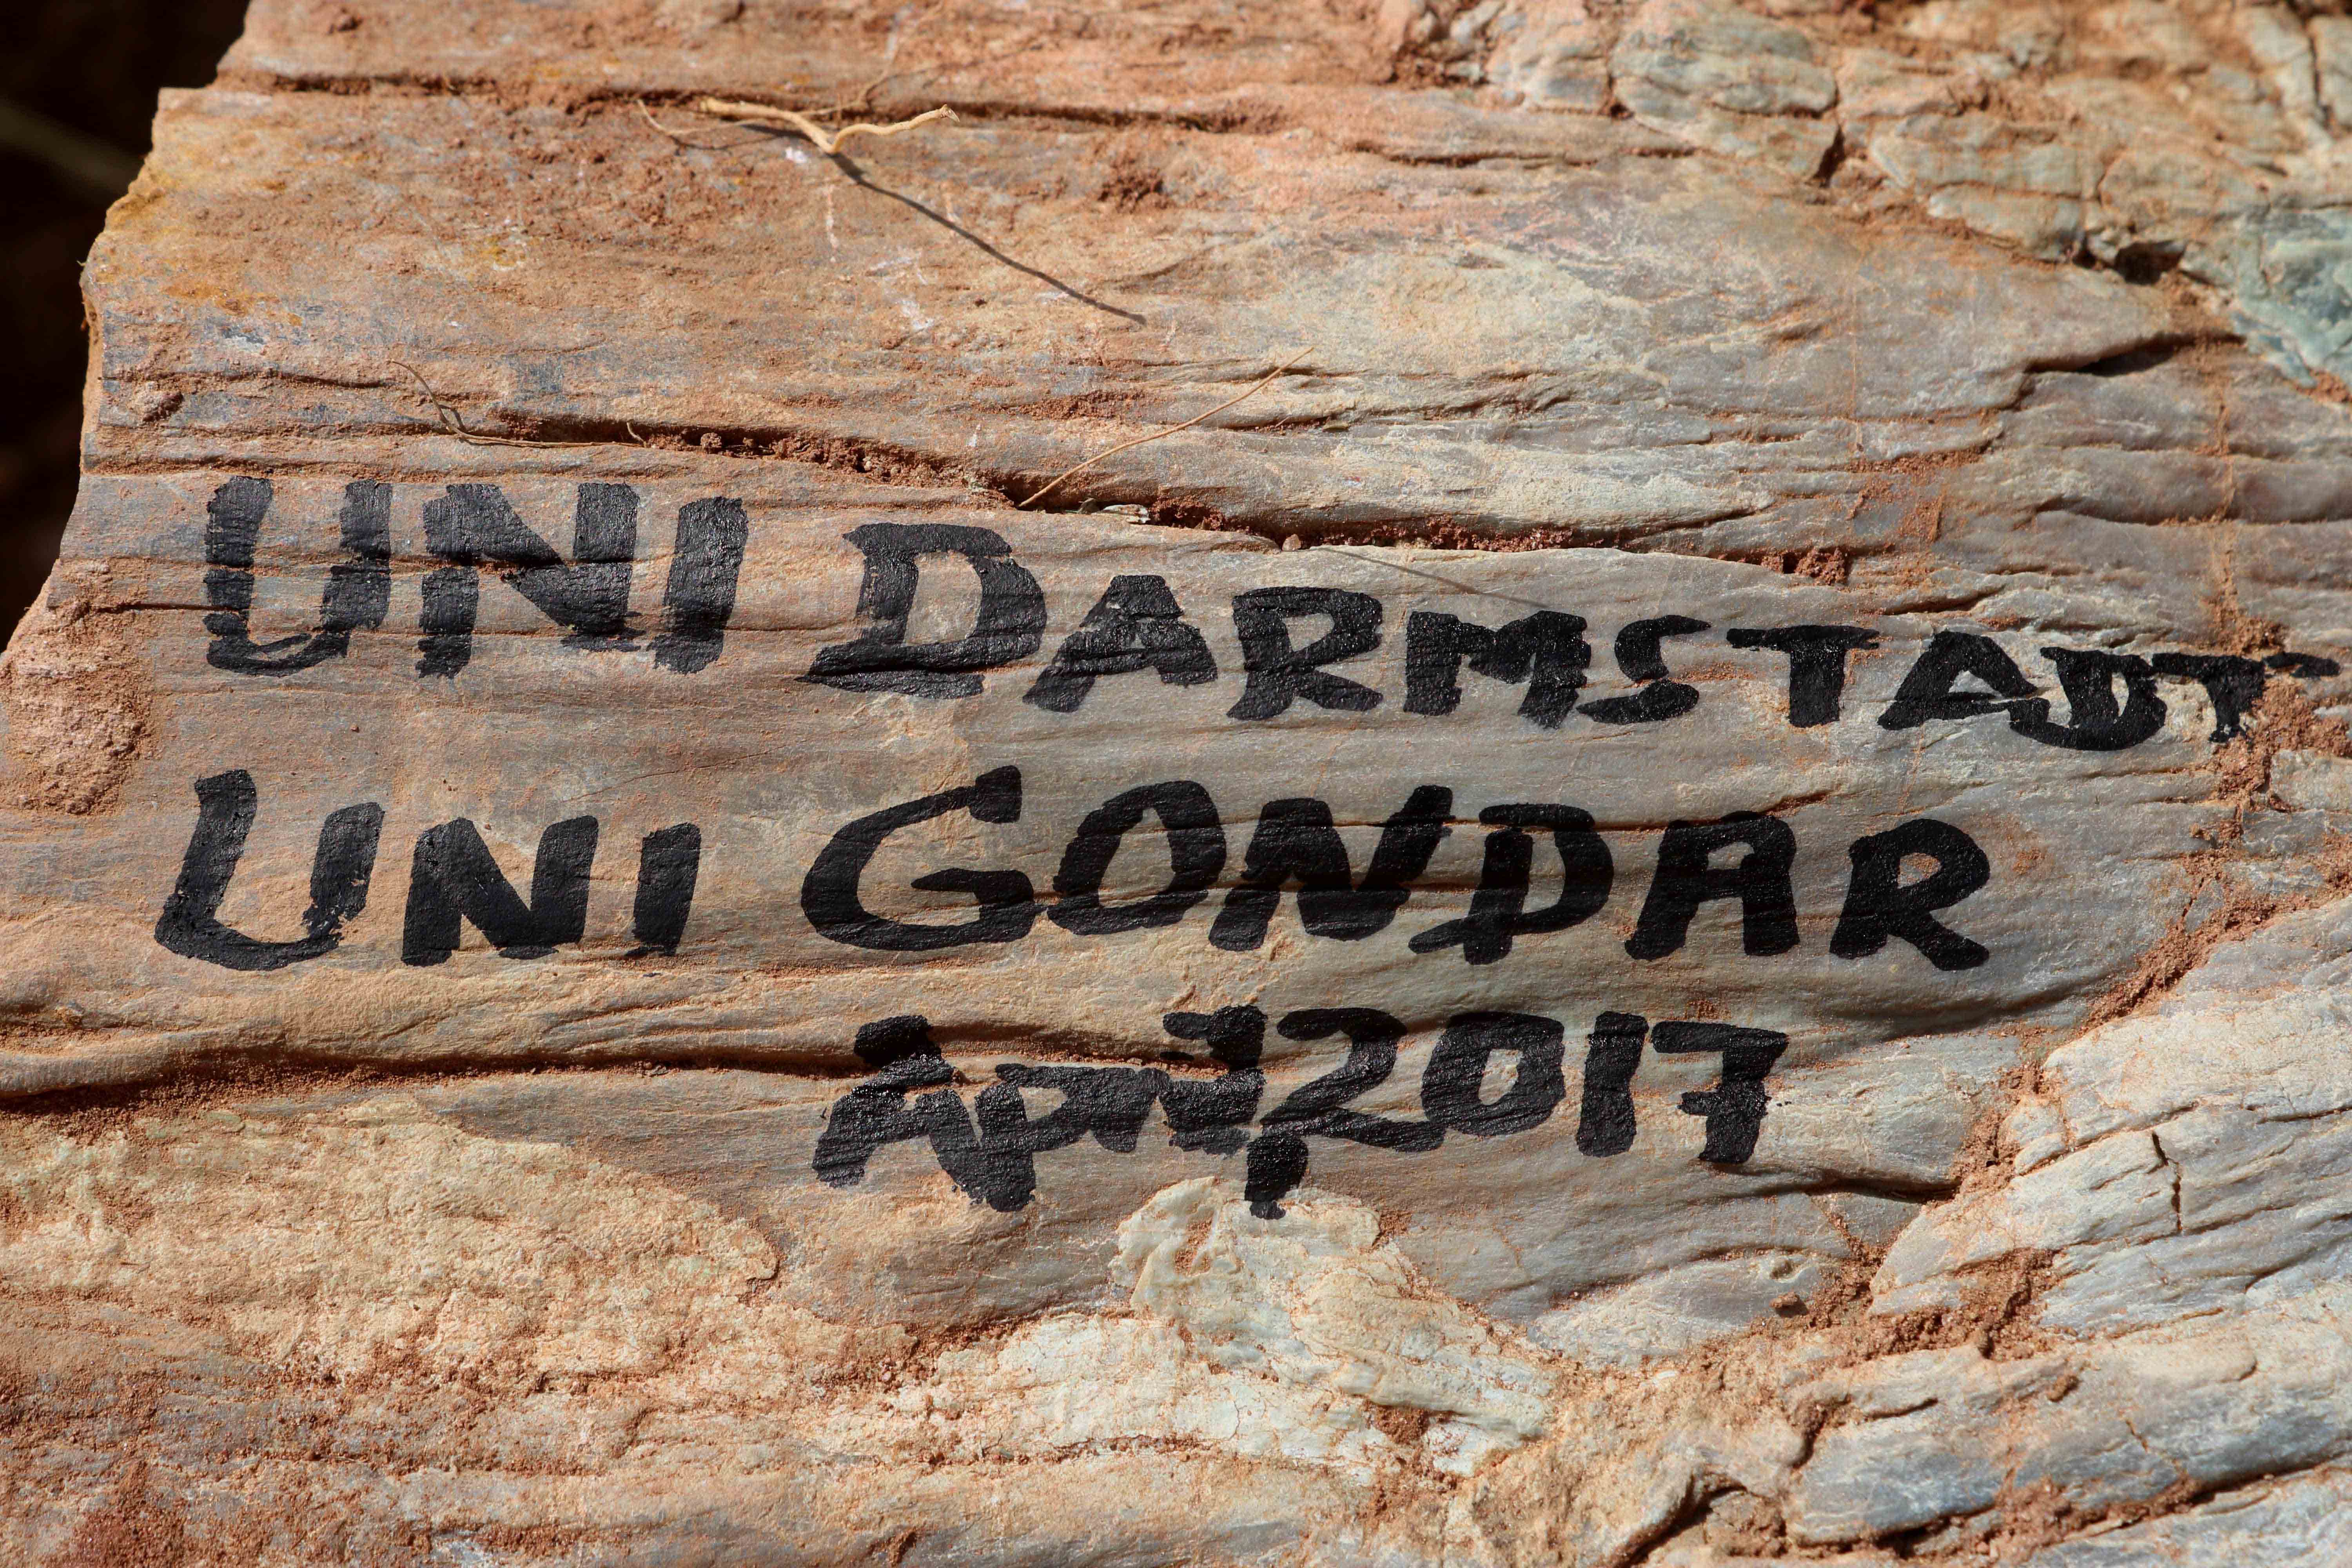 UNI DARMSTADT
UNI GONDAR
April 2017